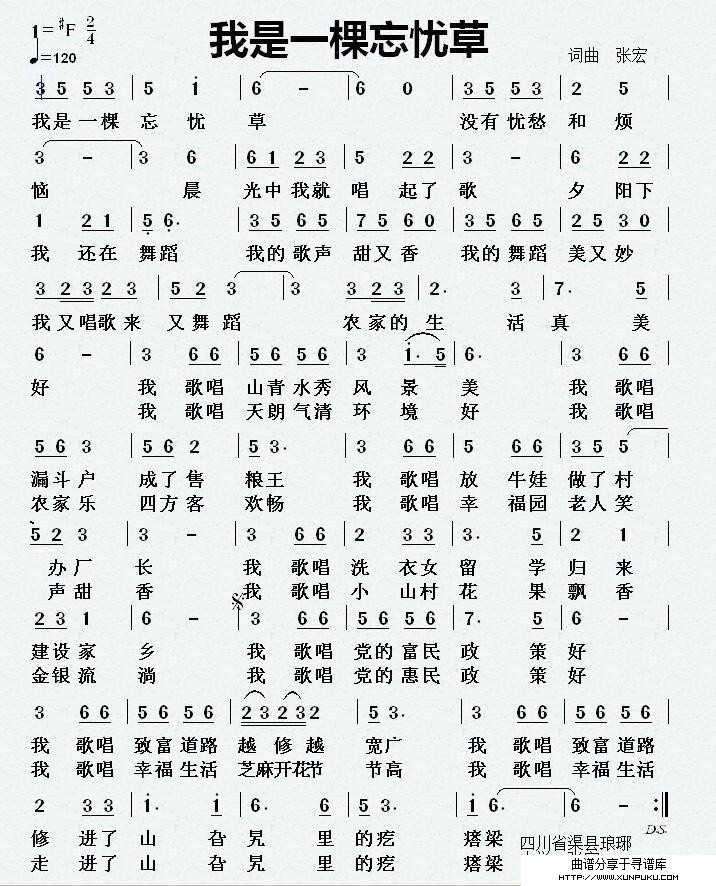 我是一棵忘忧草
1=#F 2/4
♩=120
词曲 张宏
3 5 5 3 | 5 i | 6 – | 6 0 | 3 5 5 3 | 2 5 |
我是一棵 忘 忧 草 没有忧愁 和 烦
3 – | 3 6 | 6 1 2 3 | 5 2 2 | 3 – | 6 2 2 |
恼 晨 光中我就 唱 起了 歌 夕 阳下
1 2 1 | 5 6. | 3 5 6 5 | 7 5 6 0 | 3 5 6 5 | 2 5 3 0 |
我 还在 舞蹈 我的歌声 甜又香 我的舞蹈 美又妙
3 2 3 2 3 | 5 2 3 | 3 3 2 3 | 2. 5 | 7. 5 |
我又唱歌来 又舞蹈 农家的 生 活真 美
6 – | 3 6 6 | 5 6 5 6 | 3 i. 5 | 6. | 3 6 6 |
好 我 歌唱 山青水秀 风 景 美 我 歌唱
我 歌唱 天朗气清 环 境 好 我 歌唱
5 6 3 | 5 6 2 | 5 3. | 3 6 6 | 5 6 6 | 3 5 5 |
漏斗户 成了售 粮王 我 歌唱 放 牛娃 做了村
农家乐 四方客 欢畅 我 歌唱 幸 福园 老人笑
5 2 3 | 3 – | 3 6 6 | 2 3 3 | 3. 5 | 2 1 |
办厂 长 我 歌唱 洗 衣女 留 学 归 来
声甜 香 我 歌唱 小 山村 花 果 飘 香
2 3 1 | 6 – | 3 6 6 | 5 6 5 6 | 7. 5 | 6 – |
建设家 乡 我 歌唱 党的富民 政 策 好
金银流 淌 我 歌唱 党的惠民 政 策 好
3 6 6 | 5 6 5 6 | 2 3 2 3 2 | 5 3. | 3 6 6 | 5 6 5 6 |
我 歌唱 致富道路 越 修 越 宽广 我 歌唱 致富道路
我 歌唱 幸福生活 芝麻开花节 节高 我 歌唱 幸福生活
2 3 3 | i. i | 6. 6 | 5. 5 | i 6. | 6 – :||
D.S.
修 进了 山 旮 旯 里 的 疙 瘩梁
走 进了 山 旮 旯 里 的 疙 瘩梁
四川省渠县琅琊
曲谱分享于寻谱库
HTTP://WWW.XUNPUKU.COM